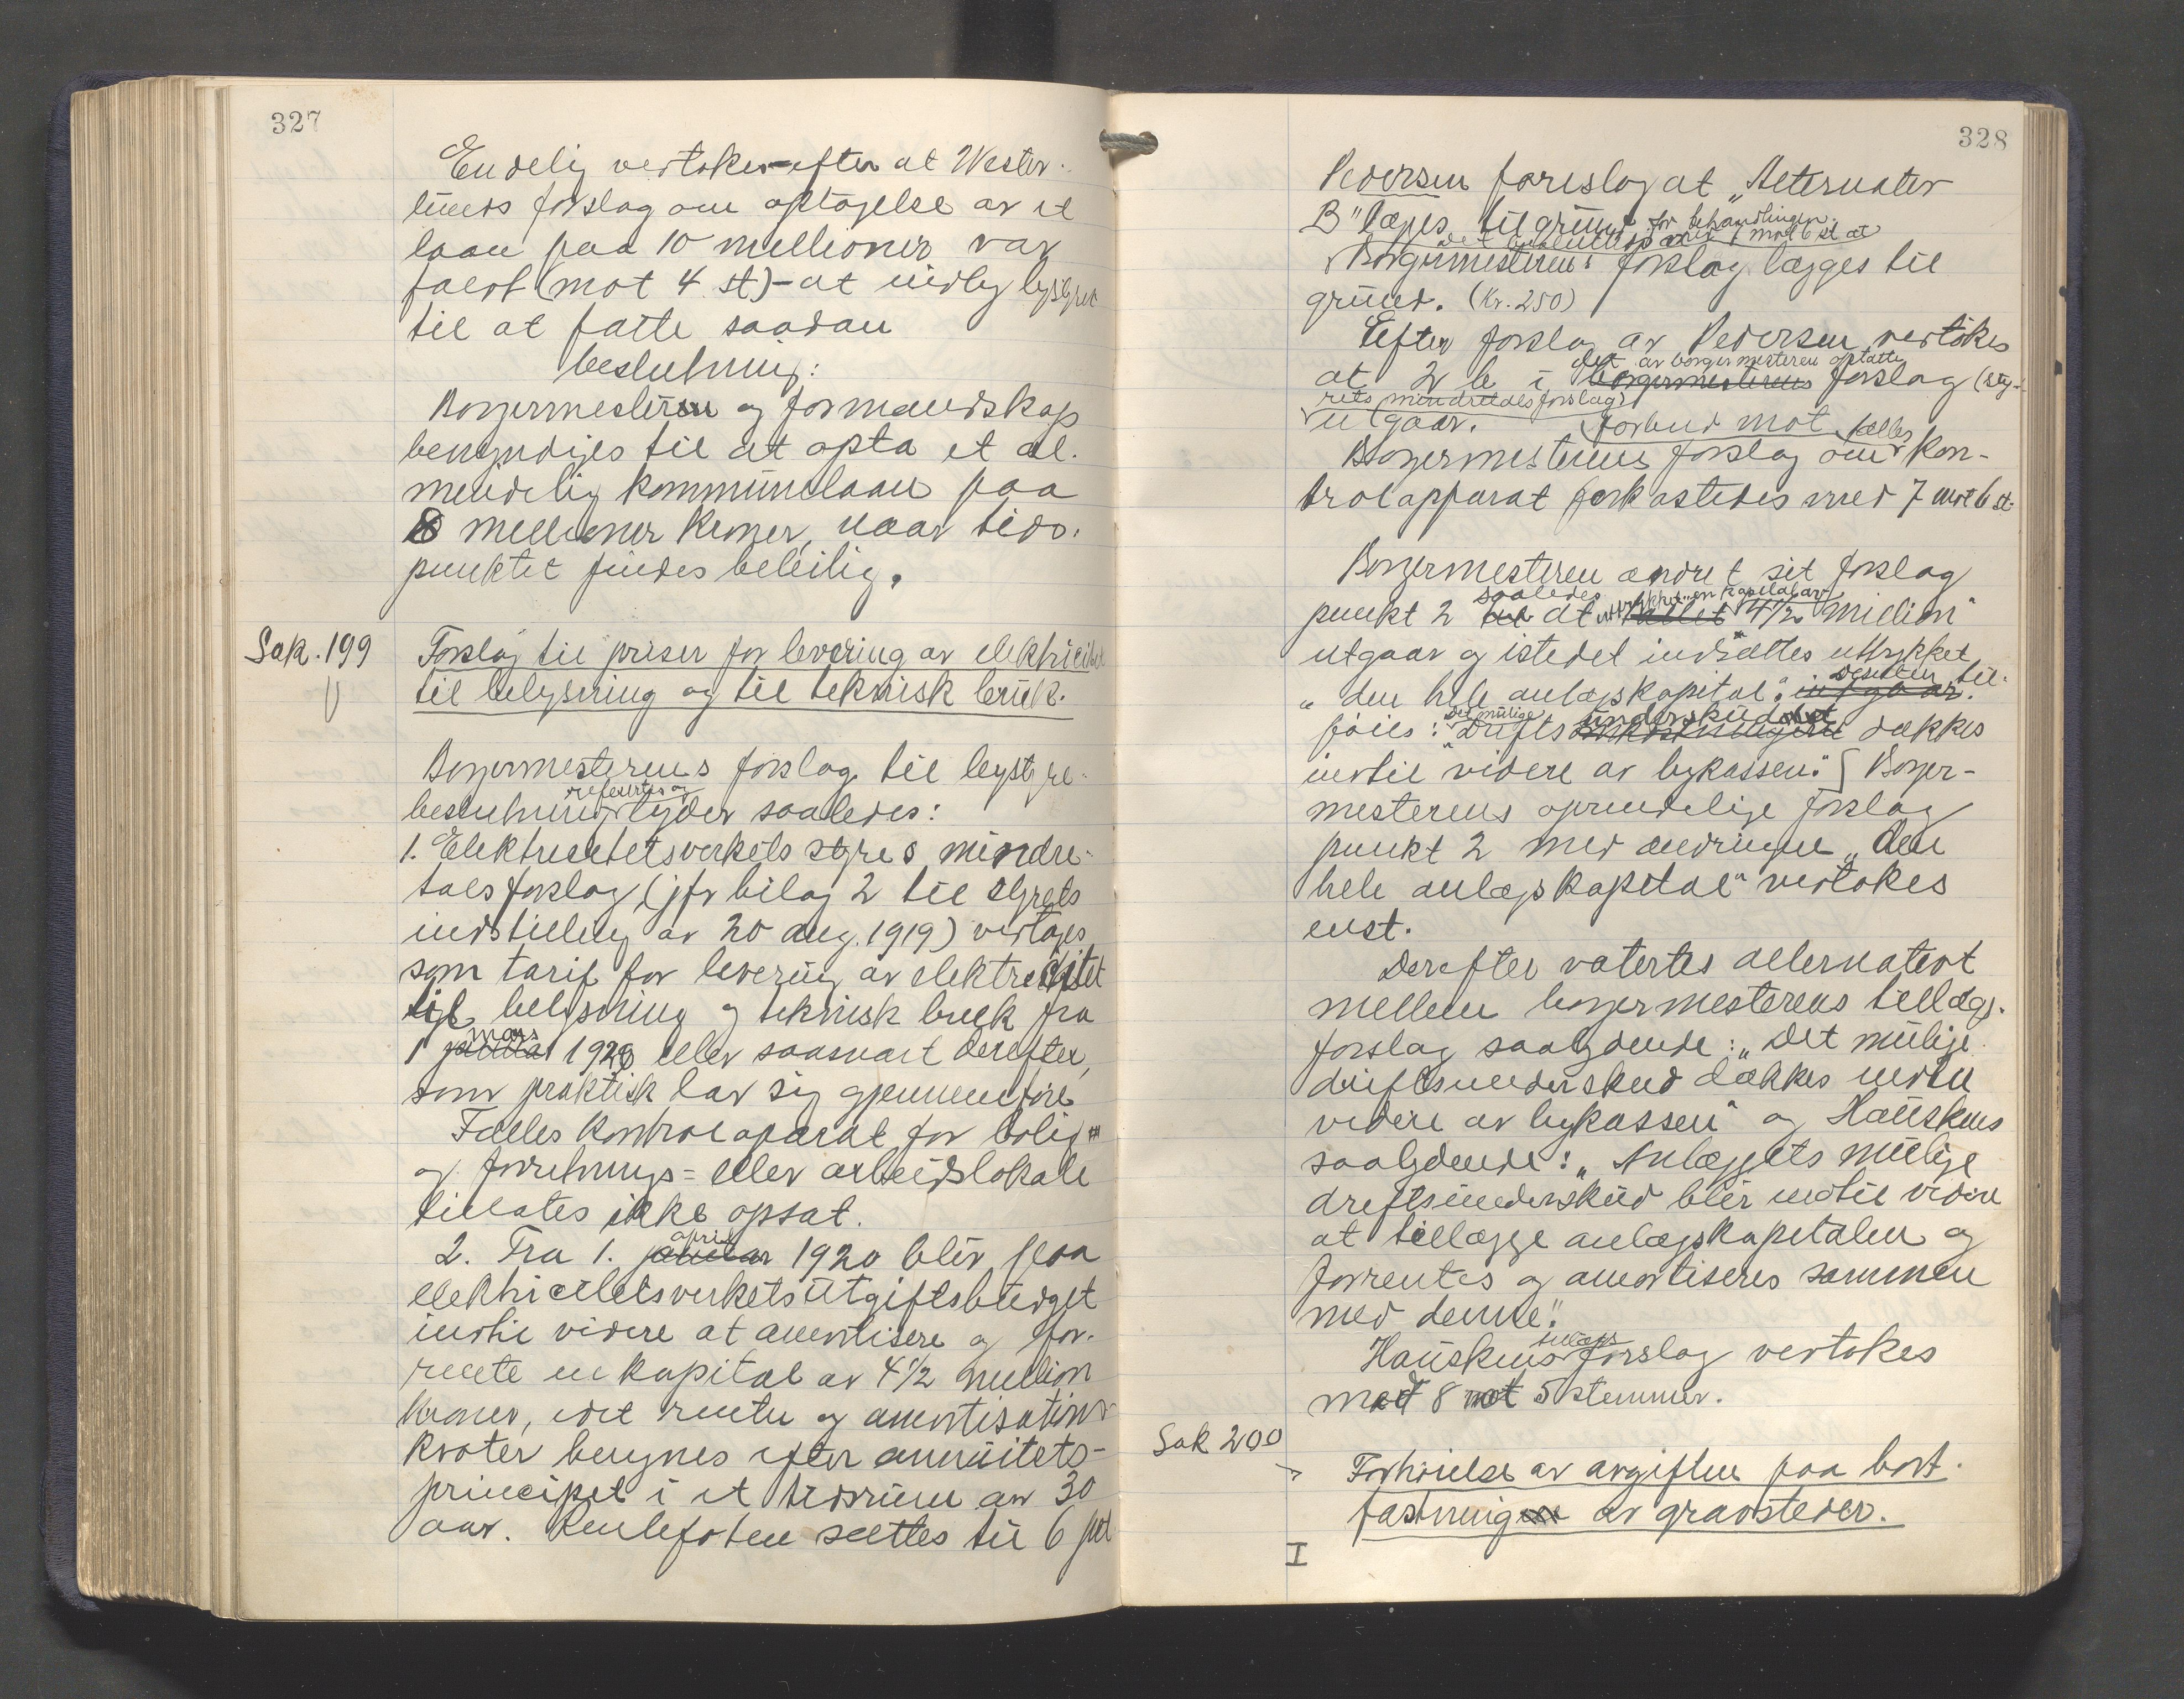 327
Endelig vertokes – efter at Wester-
lunds forslag om optagelse av et
laan paa 10 millioner var
faldt (mot 4 st) – at indby bystyret
til at fatte saadan
beslutning:
Borgermesteren og formandskap
bemyndiges til at opta et al-
mindelig kommunelaan paa
8 millioner kroner, naar tids-
punktet findes beleilig.
Sak. 199
Forslag til priser for levering av elektricitet
til belysning og til teknisk bruk.
Borgermesterens forslag til bystyre-
refertes og
beslutning lyder saaledes:
1. Elektricitetsverkets styres mindre-
talsforslag (jfr bilag 2 til styrets
indstilling av 20 aug. 1919) vedtages
som tarif for levering av elektricitet
til belysning og teknisk bruk fra
mars
1 januar 1920 eller saasnart derefter,
som praktisk lar sig gjennemføre
Fælles kontrolaparat for bolig=
og forretnings= eller arbeidslokale
tillates ikke opsat.
april
2. Fra 1. januar 1920 blir paa
elektricitetsverkets utgiftsbudget
indtil videre at amortisere og for-
rente en kapital av 4 1/2 million
kroner, idet renter og amortisations-
kvoter beregnes efter annuitets-
principet i et tidsrum av 30
aar. Rentefoten sættes til 6 pct
328
Pedersen foreslog at "Alternativ
B" lægges til grund for behandlingen.
Det besluttedes med 7 mot 6 st at
Borgermesterens forslag lægges til
grund. (Kr. 250)
Efter forslag av Pedersen vertokes
det av borgermesteren optatte
at 2 b i borgermesterens forslag (sty-
rets mindretalsforslag)
utgaar.
forbud mot fælles
Borgermesterens forslag om kon-
trolapparat forkastedes med 7 mot 6 st.
Borgermesteren ændret sit forslag
saaledes uttrykket "en kapital av
punkt 2 til at tallet 4 1/2 million"
utgaar og istedet indsættes uttrykket
"den hele anlægskapital". utgaar. Desuten til-
føies: "Det mulige driftsunderskud dækkes
indtil videre av bykassen." Borger-
mesterens oprindelige forslag
punkt 2 med ændringen "den
hele anlægskapital" vertokes
enst.
Derefter votertes alternativt
mellem borgermesterens tillægs-
forslag saalydende: "Det mulige
driftsunderskud dækkes indtil
videre av bykassen" og Hauskens
saalydende: "Anlæggets mulige
driftsunderskud blir indtil videre
at tillægge anlægskapitalen og
forrentes og amortiseres sammen
med denne".
tillægs
Hauskens forslag vertokes
med 8 mot 5 stemmer.
Sak 200
Forhøielse av avgiften paa bort-
fæstningen av gravsteder.
I